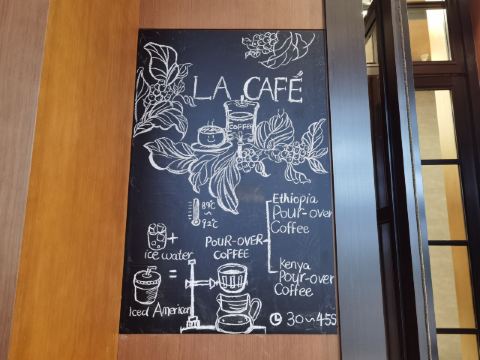 LA CAFÉ
COFFEE
89℃
~
92℃
Ethiopia
POUR-OVER
Coffee
POUR-OVER
COFFEE
Kenya
Pour-over
Coffee
+
ice water
=
Iced American
30~45S